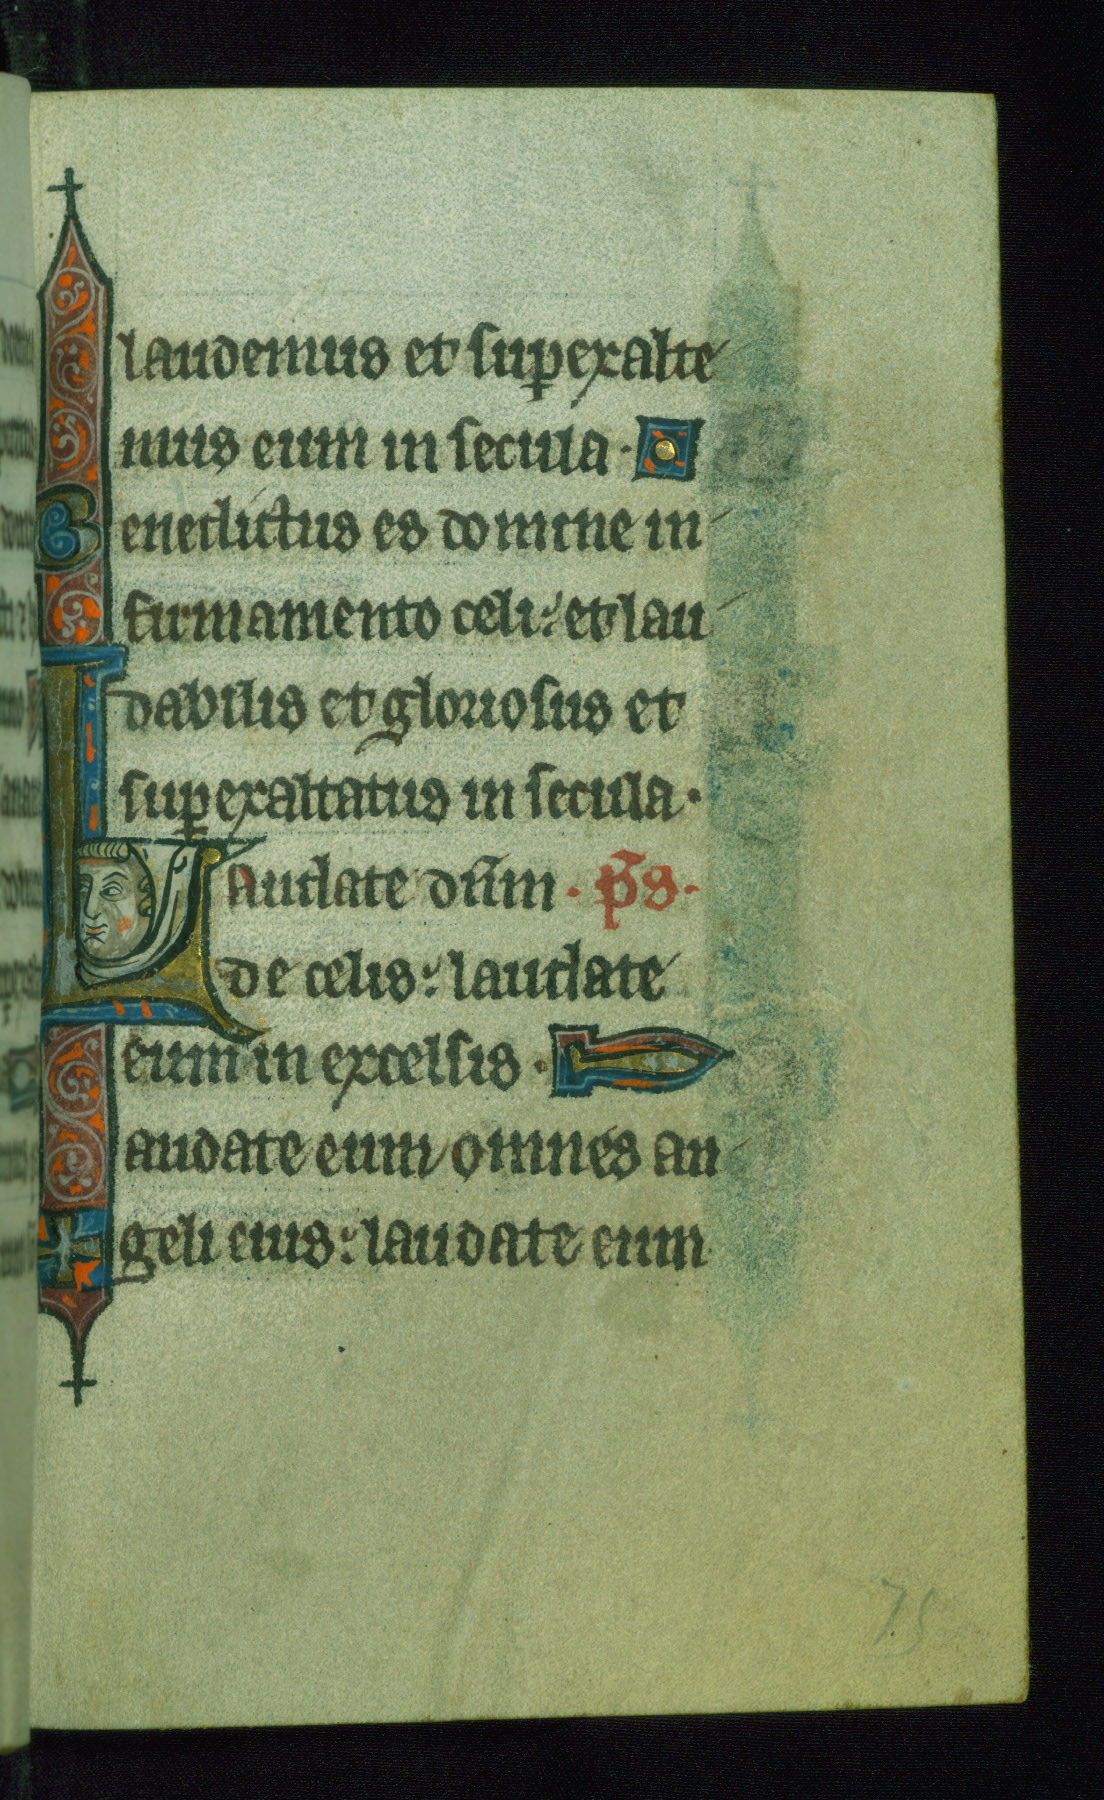 laudemus et suꝑexalte
mus eum in secula ·
Benedictus es domine in
firmamento celi : et lau
dabilis et gloriosus et
suꝑexaltatus in secula ·
Laudate dn̄m · p̄s ·
de celis : laudate
eum in excelsis ·
audate eum omnes an
geli eius : laudate eum
75